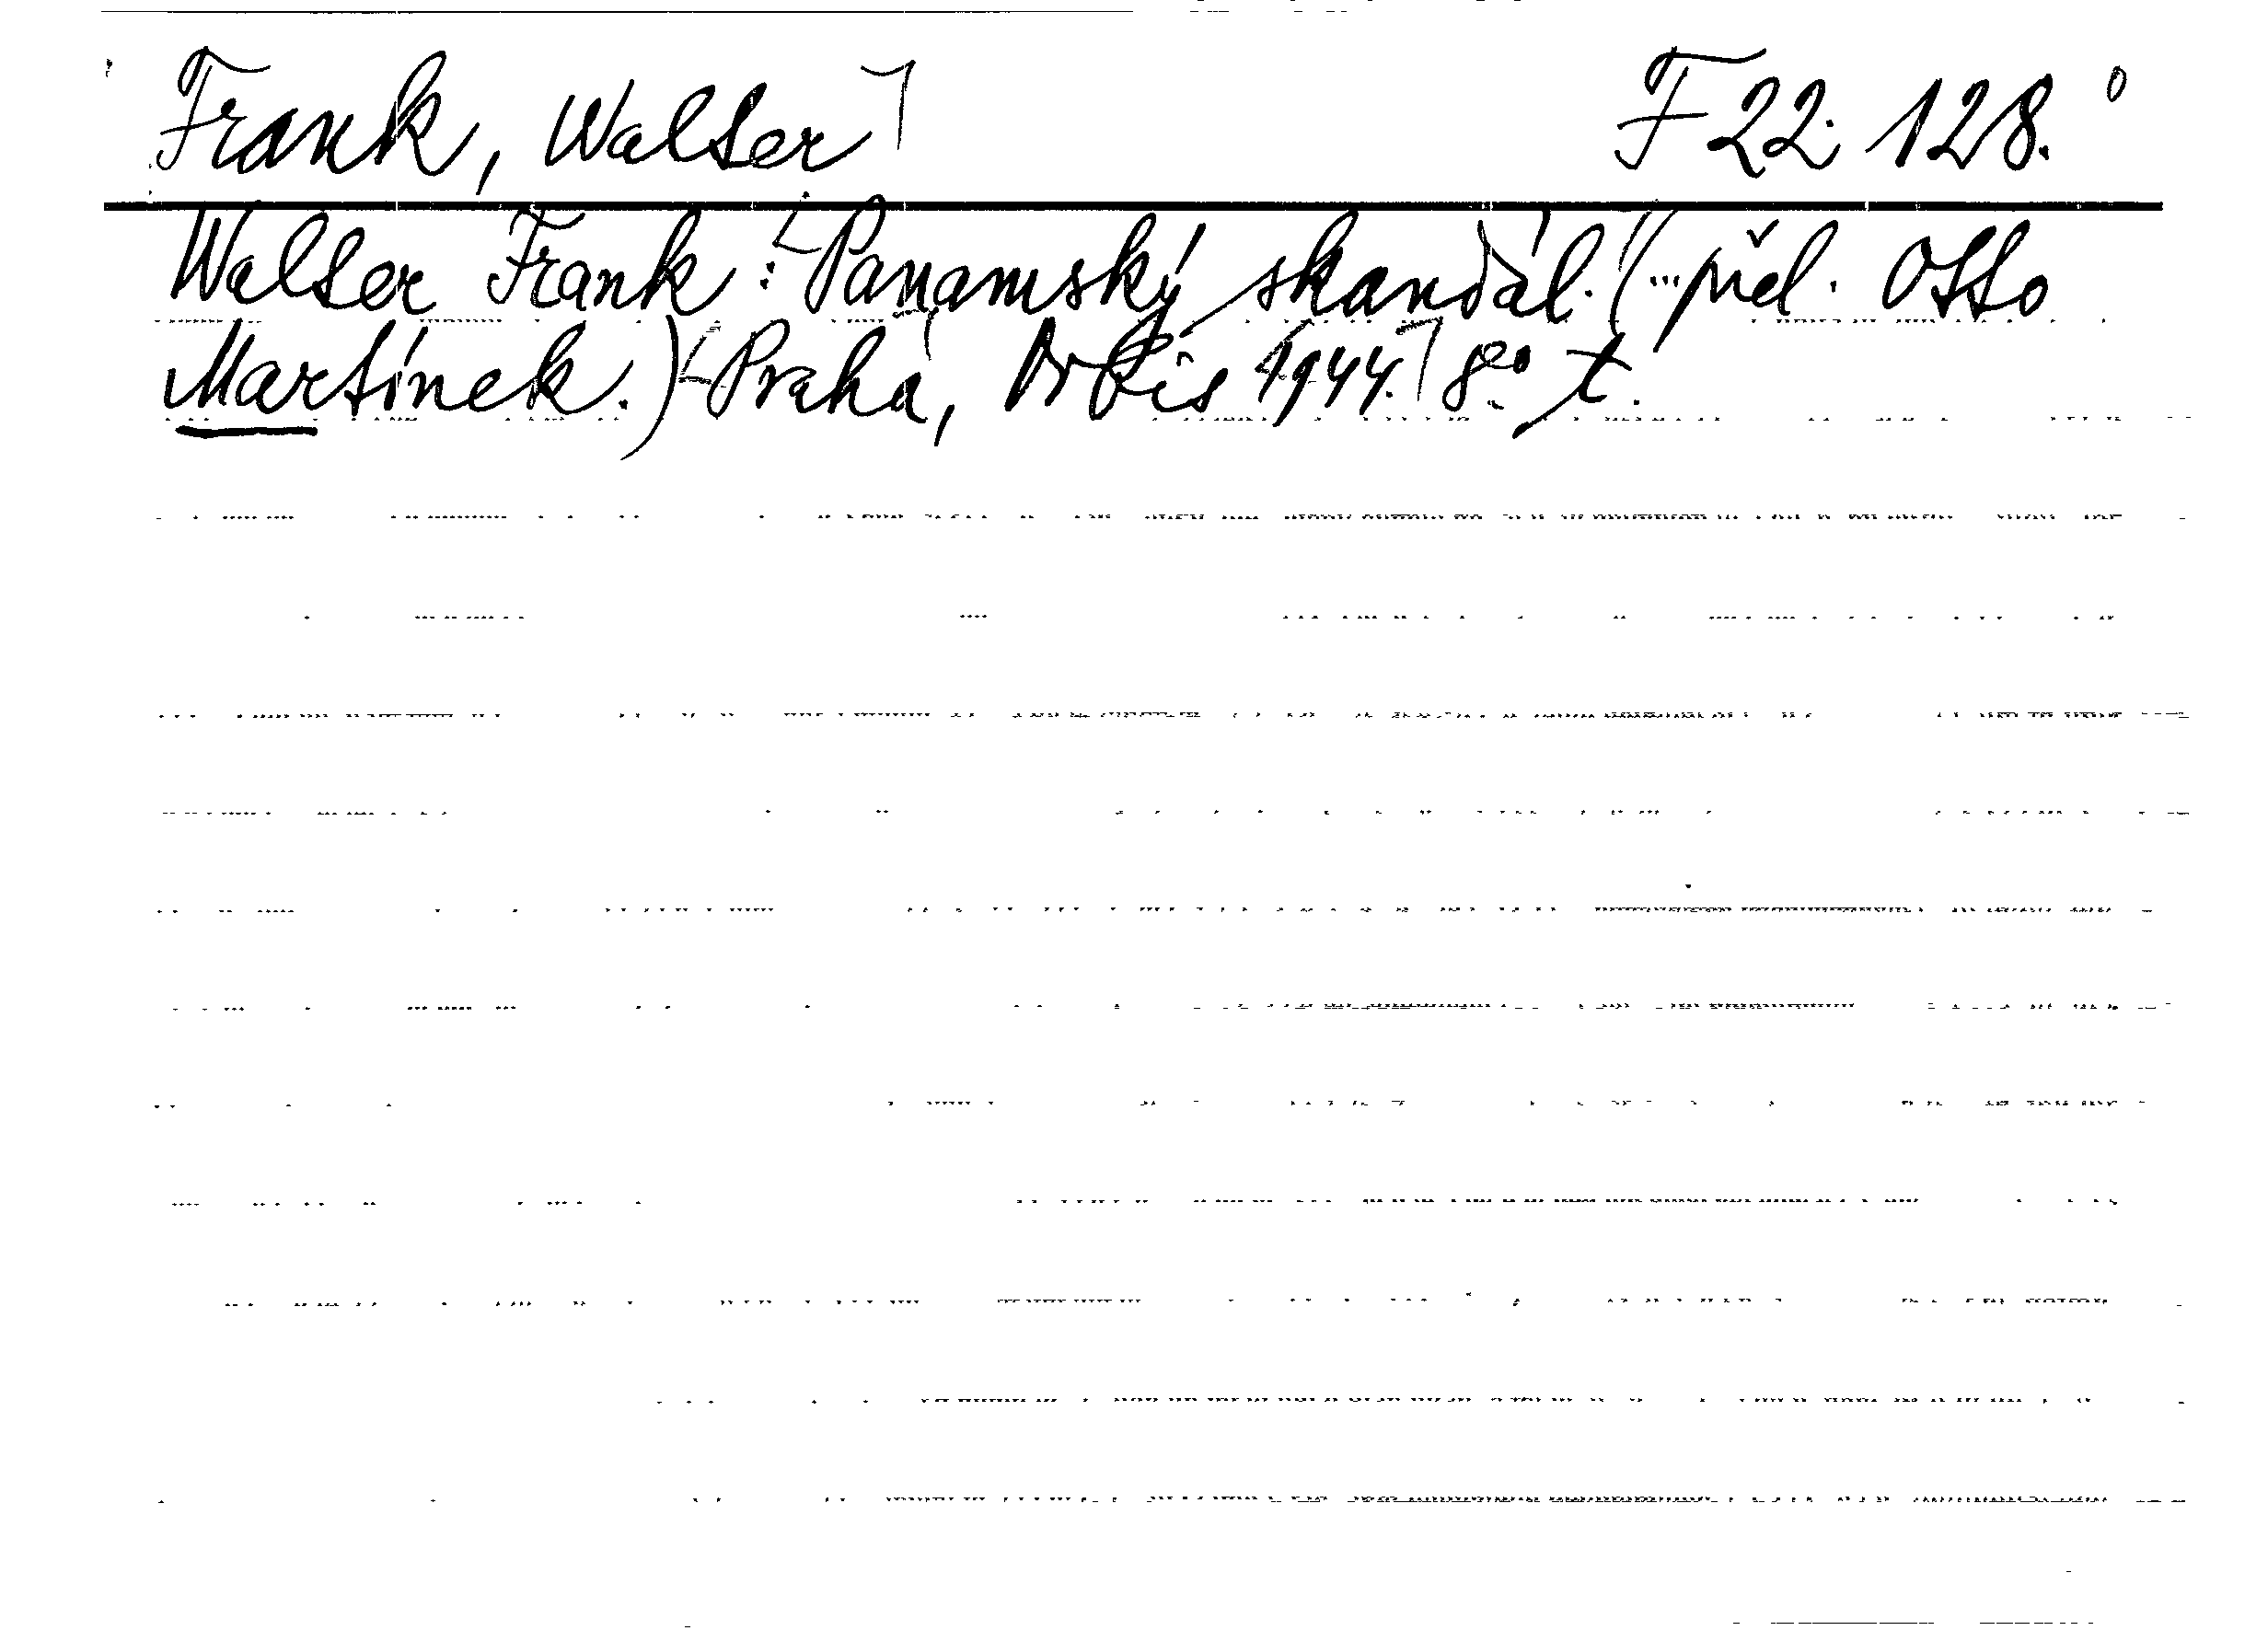 Frank, Walter F 22.128.
Walter Frank: Panamský skandál. (...přel. Otto
Martínek.) Praha, Orbis 1944. 8° t.